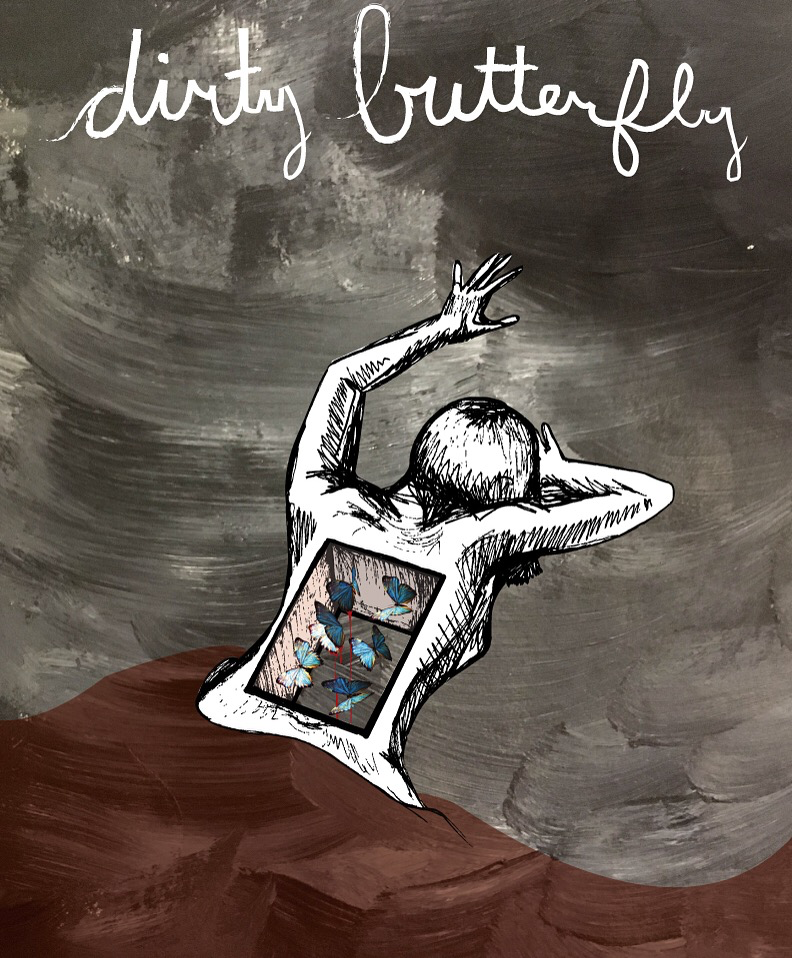 dirty butterfly